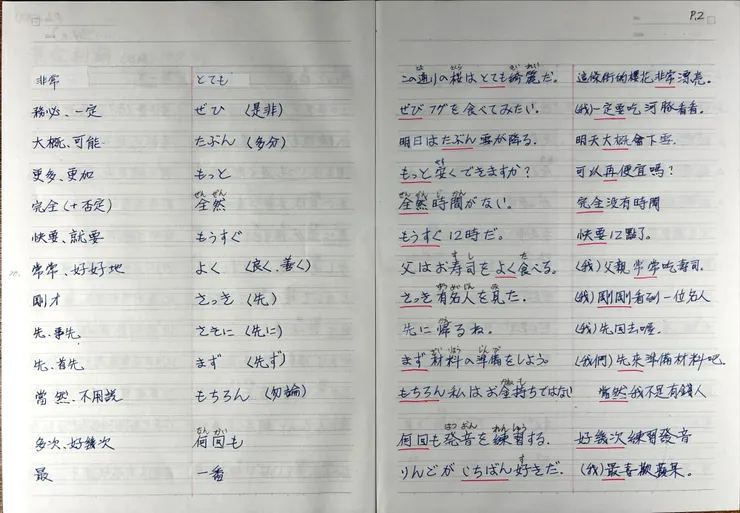 P.2
非常 とても この通りの桜はとても綺麗だ。 這條街的櫻花非常漂亮。
務必、一定 ぜひ (是非) ぜひフグを食べてみたい。 (我)一定要吃河豚看看。
大概、可能 たぶん (多分) 明日はたぶん雪が降る. 明天大概會下雪.
更多、更加 もっと もっと安くできますか? 可以再便宜嗎?
完全(+否定) 全然 全然時間がない。 完全沒有時間
快要、就要 もうすぐ もうすぐ12時だ。 快要12點了。
常常、好好地 よく (良く、善く) 父はお寿司をよく食べる。 (我)父親常常吃壽司.
剛才 さっき (先) さっき有名人を見た. (我)剛剛看到一位名人
先、事先 さきに (先に) 先に帰るね。 (我)先回去喔.
先、首先 まず (先ず) まず材料の準備をしよう。 (我們)先來準備材料吧.
當然、不用説 もちろん (勿論) もちろん私はお金持ちではない 當然我不是有錢人
多次、好幾次 何回も 何回も発音を練習する. 好幾次練習發音
最 一番 りんごがいちばん好きだ. (我)最喜歡蘋果。